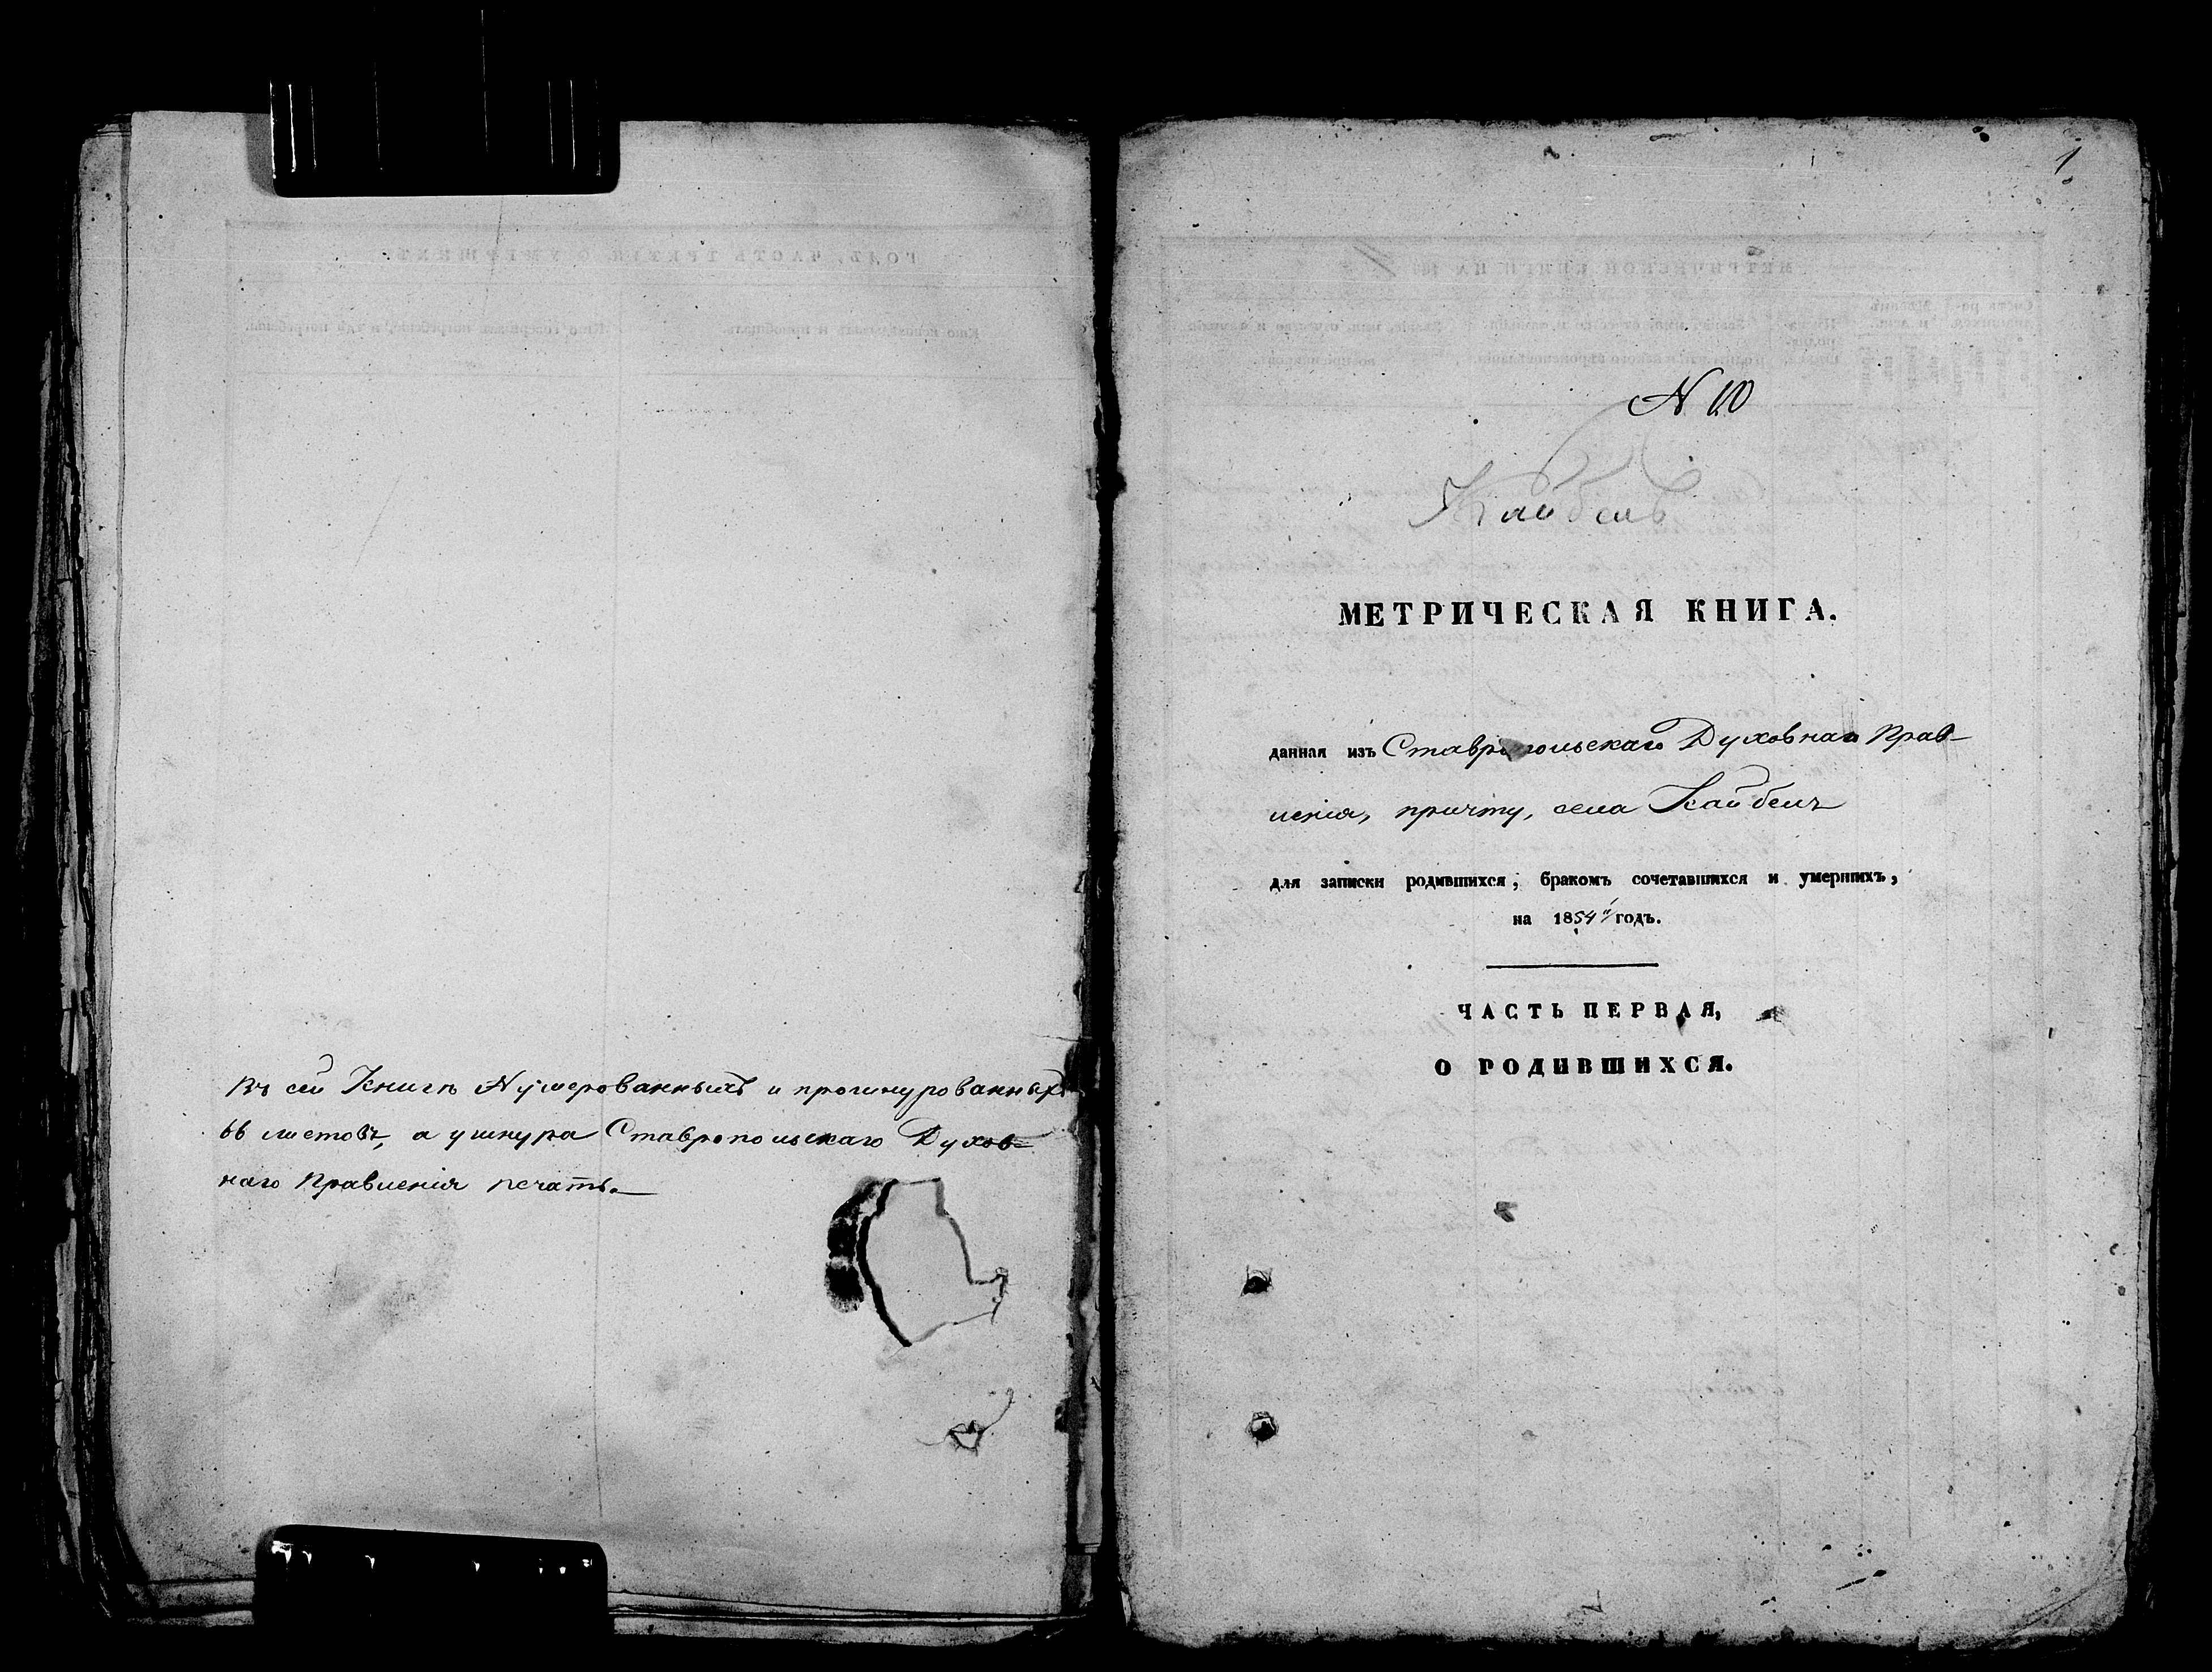 Въ сей Книгѣ Нумерованныхъ и прошнурованныхъ
66 листовъ, а у шнура Ставропольскаго Духов-
наго Правленія печать.
1
N 10
Кайбелъ
МЕТРИЧЕСКАЯ КНИГА.
данная изъ Ставропольскаго Духовнаго Прав-
ленія, причту, села Кайбелъ
для записки родившихся, бракомъ сочетавшихся и умершихъ,
на 1854й годъ.
ЧАСТЬ ПЕРВАЯ,
О РОДИВШИХСЯ.